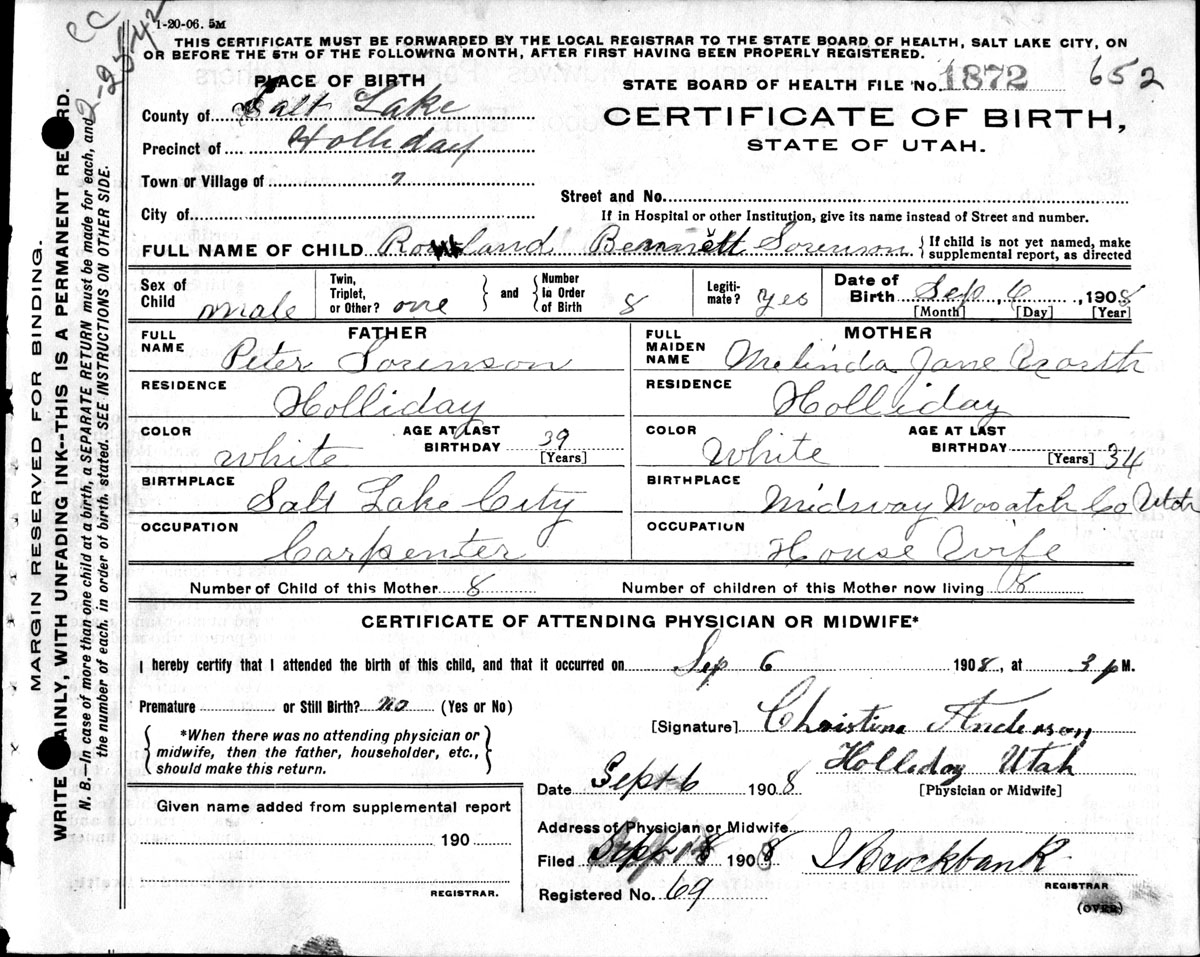 1-20-06. 5M
THIS CERTIFICATE MUST BE FORWARDED BY THE LOCAL REGISTRAR TO THE STATE BOARD OF HEALTH, SALT LAKE CITY, ON
OR BEFORE THE 5TH OF THE FOLLOWING MONTH, AFTER FIRST HAVING BEEN PROPERLY REGISTERED.
PLACE OF BIRTH
STATE BOARD OF HEALTH FILE No. 1872 652
County of Salt Lake
CERTIFICATE OF BIRTH,
Precinct of Holliday
STATE OF UTAH.
Town or Village of 7
Street and No.
City of
If in Hospital or other Institution, give its name instead of Street and number.
FULL NAME OF CHILD Rowland Bennett Sorenson { If child is not yet named, make
supplemental report, as directed
Sex of Child male Twin, Triplet, or Other? one } and { Number in Order of Birth 8 Legiti-mate? yes Date of Birth Sep, 6, 1908
[Month] [Day] [Year]
FATHER MOTHER
FULL NAME Peter Sorenson FULL MAIDEN NAME Melinda Jane
RESIDENCE Holliday RESIDENCE Holliday
COLOR white AGE AT LAST BIRTHDAY 39 [Years] COLOR White AGE AT LAST BIRTHDAY [Years] 34
BIRTHPLACE Salt Lake City BIRTHPLACE Midsway Wosatch Co Utah
OCCUPATION Carpenter OCCUPATION House Wife
Number of Child of this Mother 8 Number of children of this Mother now living 8
CERTIFICATE OF ATTENDING PHYSICIAN OR MIDWIFE*
I hereby certify that I attended the birth of this child, and that it occurred on Sep 6 1908, at 3 p M.
Premature or Still Birth? no (Yes or No)
[Signature] Christine Anderson
*When there was no attending physician or
midwife, then the father, householder, etc.,
should make this return.
Holliday Utah
Date Sept 6 1908 [Physician or Midwife]
Given name added from supplemental report
190
REGISTRAR.
Address of Physician or Midwife
Filed Sept 18 1908 J Brockbank
REGISTRAR
Registered No. 69
(OVER)
MARGIN RESERVED FOR BINDING.
WRITE PLAINLY, WITH UNFADING INK--THIS IS A PERMANENT RECORD.
N. B.—In case of more than one child at a birth, a SEPARATE RETURN must be made for each, and
the number of each, in order of birth, stated. SEE INSTRUCTIONS ON OTHER SIDE.